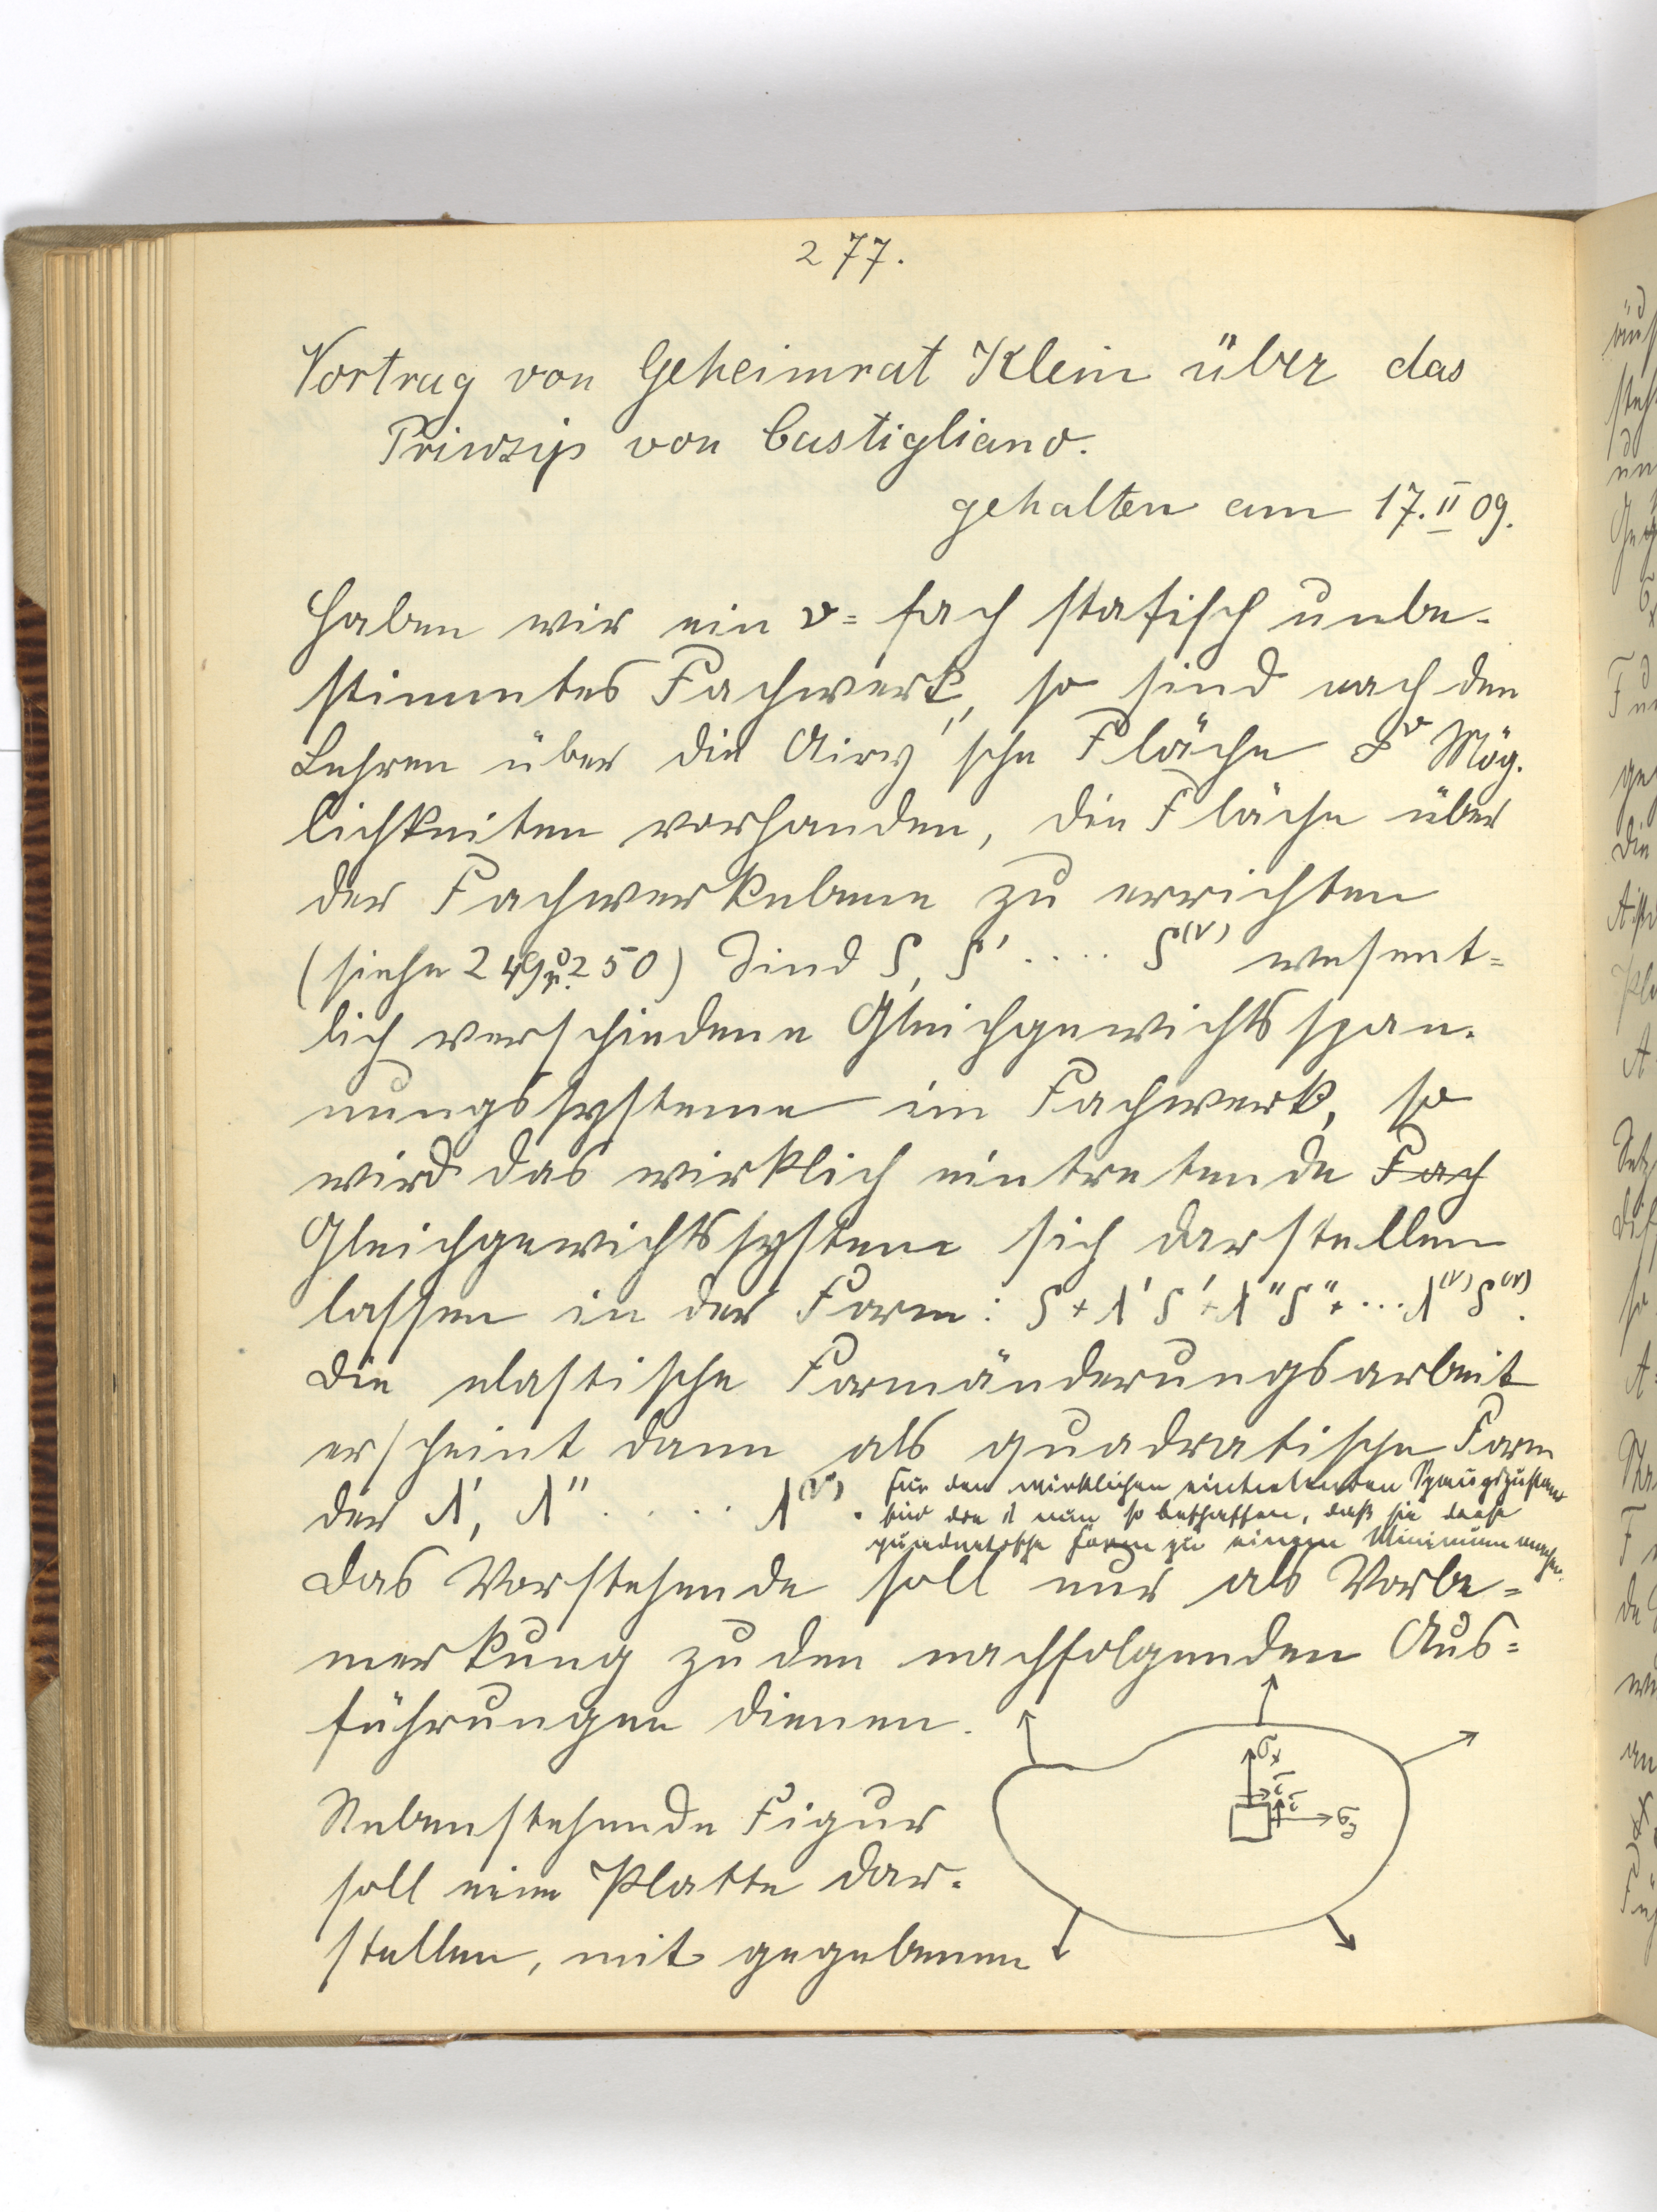 277.
Vortrag von Geheimrat Klein über das
Prinzip von Castigliano.
gehalten am 17. II 09.
Haben wir ein ν= fach statisch unbe-
stimmtes Fachwerk, so sind nach den
Lehren über die Airy'sche Fläche ∞^ν Mög-
lichkeiten vorhanden, die Fläche über
der Fachwerkebene zu errichten
(siehe 249 u. 250) Sind S, S' .... S^(ν) wesent=
lich verschiedene Gleichgewichtsspan-
nungssysteme im Fachwerk, so
wird das wirklich eintretende Fach
Gleichgewichtssystem sich darstellen
lassen in der Form: S + λ'S' + λ''S'' + ... λ^(ν)S^(ν).
Die elastische Formänderungsarbeit
erscheint dann als quadratische Form
der λ', λ'' ..... λ^(ν).
Für den wirklichen eintretenden Spanngszustand
sind die λ nun so beschaffen, daß sie diese
quadratische Form zu einem Minimum machen.
Das Vorstehende soll nur als Vorbe=
merkung zu den nachfolgenden Aus=
führungen dienen.
σx
τ
τ
σy
Nebenstehende Figur
soll eine Platte dar-
stellen, mit gegebenen